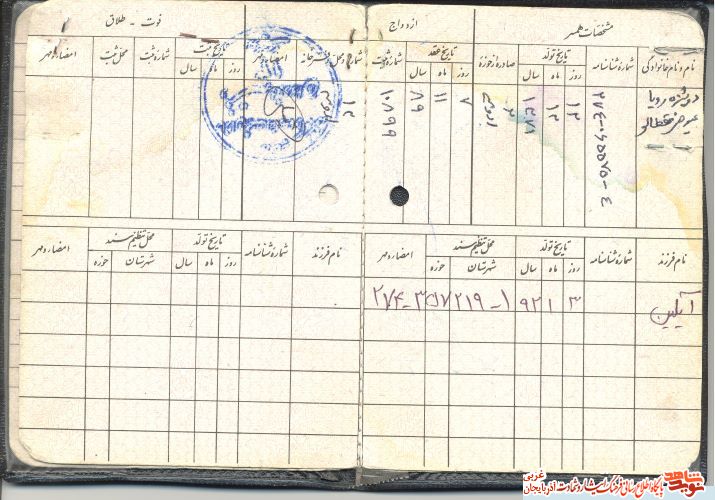 مشخصات همسر
ازدواج
فوت - طلاق
نام و نام خانوادگی
شماره شناسنامه
تاریخ تولد
روز
ماه
سال
صادره از حوزه
تاریخ عقد
روز
ماه
سال
شماره ثبت
امضاء و مهر
تاریخ ثبت
روز
ماه
سال
شماره ثبت
محل ثبت
امضاء و مهر
دوشیزه رویا
۱۲
۱۲
۱۳۷۱
۲
ارومیه
۷
۱۱
۸۹
۱۰۸۹۹
۱۴
ارومیه
نام فرزند
شماره شناسنامه
تاریخ تولد
روز
ماه
سال
محل تنظیم سند
شهرستان
حوزه
امضاء و مهر
نام فرزند
شماره شناسنامه
تاریخ تولد
روز
ماه
سال
محل تنظیم سند
شهرستان
حوزه
امضاء و مهر
آیلین
۳
۱
۹۲
نوید شاهد
پایگاه اطلاع رسانی فرهنگ ایثار و شهادت آذربایجان غربی